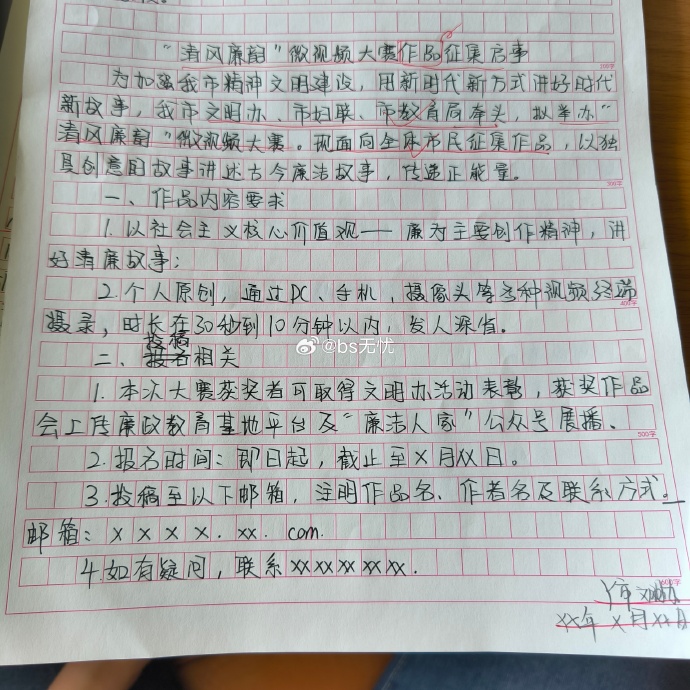 “清风廉韵”微视频大赛作品征集启事
为加强我市精神文明建设，用新时代新方式讲好时代
新故事，我市文明办、市妇联、市教育局牵头，拟举办“
清风廉韵”微视频大赛。现面向全体市民征集作品，以独
具创意的故事讲述古今廉洁故事，传递正能量。
一、作品内容要求
1.以社会主义核心价值观——廉为主要创作精神，讲
好清廉故事；
2.个人原创，通过PC、手机，摄像头等各种视频终端
摄录，时长在30秒到10分钟以内，发人深省。
投稿
二、报名相关
@bs无忧
1.本次大赛获奖者可取得文明办活动表彰，获奖作品
会上传廉政教育基地平台及“廉洁人家”公众号展播、
2.报名时间：即日起，截止至X月XX日。
3.投稿至以下邮箱，注明作品名、作者名及联系方式。
邮箱：xxxx.xx.com.
4.如有疑问，联系xxxxxx.
市文明办
xx年x月xx日
100字
300字
400字
500字
600字